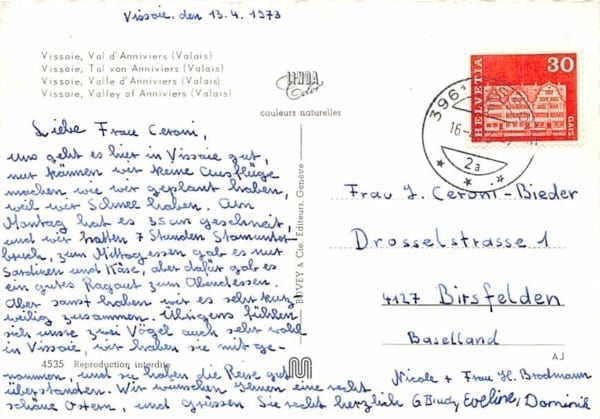 Vissoie, den 13.4.1973
Vissoie, Val d'Anniviers (Valais)
Vissoie, Tal von Anniviers (Valais)
Vissoie, Valle d'Anniviers (Valais)
Vissoie, Valley of Anniviers (Valais)
LINDA
Color
couleurs naturelles
HELVETIA
30
GAIS
3961
16-
2a
Liebe Frau Ceroni,
uns geht es hier in Vissoie gut,
nur können wir keine Ausflüge
machen wie wir geplant haben,
weil wir Schnee haben. Am
Montag hat es 35cm geschneit,
und wir hatten 7 Stunden Stromunter-
bruch, zum Mittagessen gab es nur
Sardinen und Käse, aber dafür gab es
ein gutes Ragout zum Abendessen.
Aber sonst haben wir es sehr kurz
weilig zusammen. Übrigens fühlen
sich unsre zwei Vögel auch sehr wohl
in Vissoie, wir haben sie mit ge-
nommen, und sie haben die Reise gut
überstanden. Wir wünschen Ihnen eine recht
schöne Ostern, und grüssen Sie recht herzlich
Nicole + Frau H. Brodmann
Eveline, Dominik
BOVEY & Cie, Editeurs, Genève
Frau J. Ceroni-Bieder
Drosselstrasse 1
4127 Birsfelden
Baselland
4535 Reproduction interdite
M
AJ